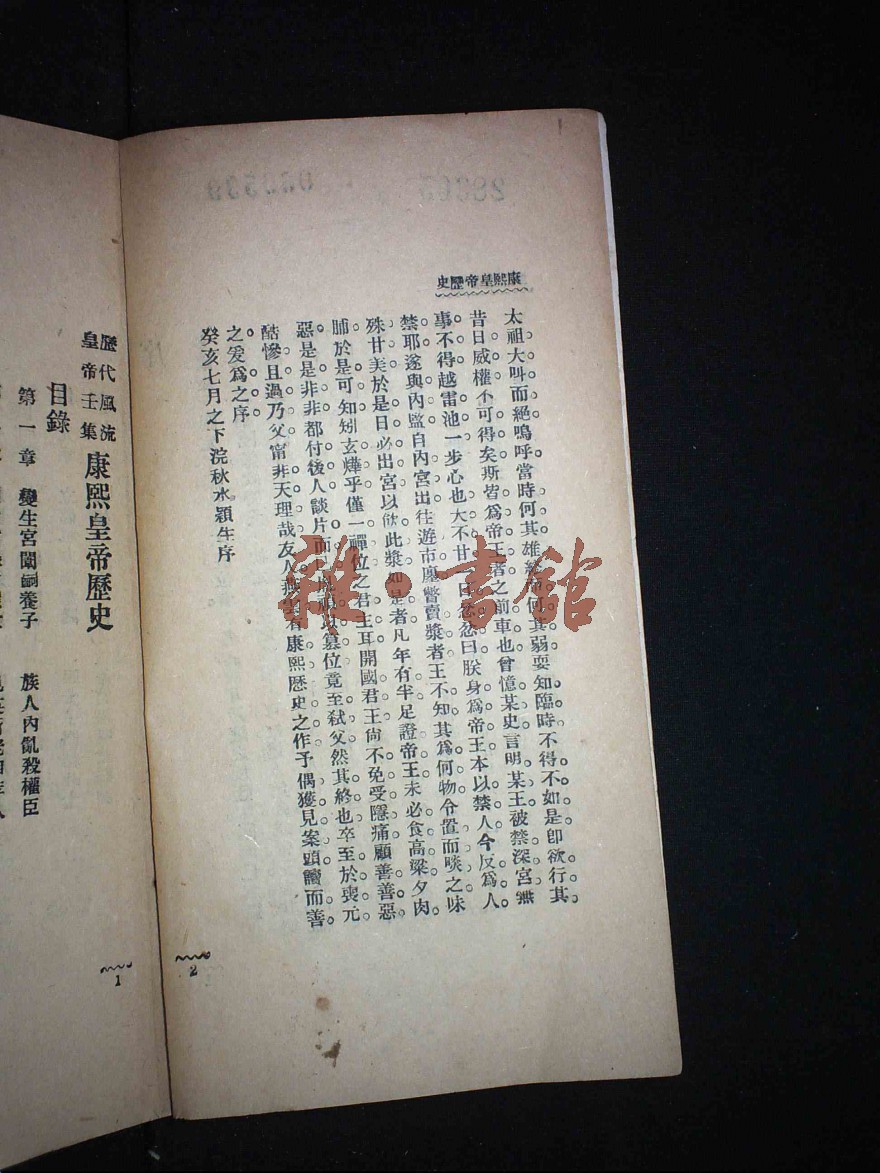 康熙皇帝歷史
太祖大叫而絕嗚呼當時何其雄終何其弱耍知臨時不得不如是卽欲行其
昔日威權不可得矣斯皆爲帝王者之前車也曾憶某史言明某王被禁深宮無
事不得越雷池一步心也大不甘一日忿忿曰朕身爲帝王本以禁人今反爲人
禁耶遂與內監自內宮出往遊市廛瞥賣漿者王不知其爲何物令置而啖之味
殊甘美於是日必出宮以飲此漿如是者凡年有半足證帝王未必食高粱夕肉
脯於是可知矧玄燁乎僅一禪位之君主耳開國君王尙不免受隱痛顧善善惡
惡是是非非都付後人談片而已以篡位竟至弒父然其終也卒至於喪元
酷慘且過乃父甯非天理哉友人燕君有康熙歷史之作予偶獲見案頭讀而善
之爰爲之序
癸亥七月之下浣秋水穎生序
2
歷代風流
皇帝壬集
康熙皇帝歷史
目錄
第一章 變生宮闈嗣養子 族人內亂殺權臣
1
雜·書館